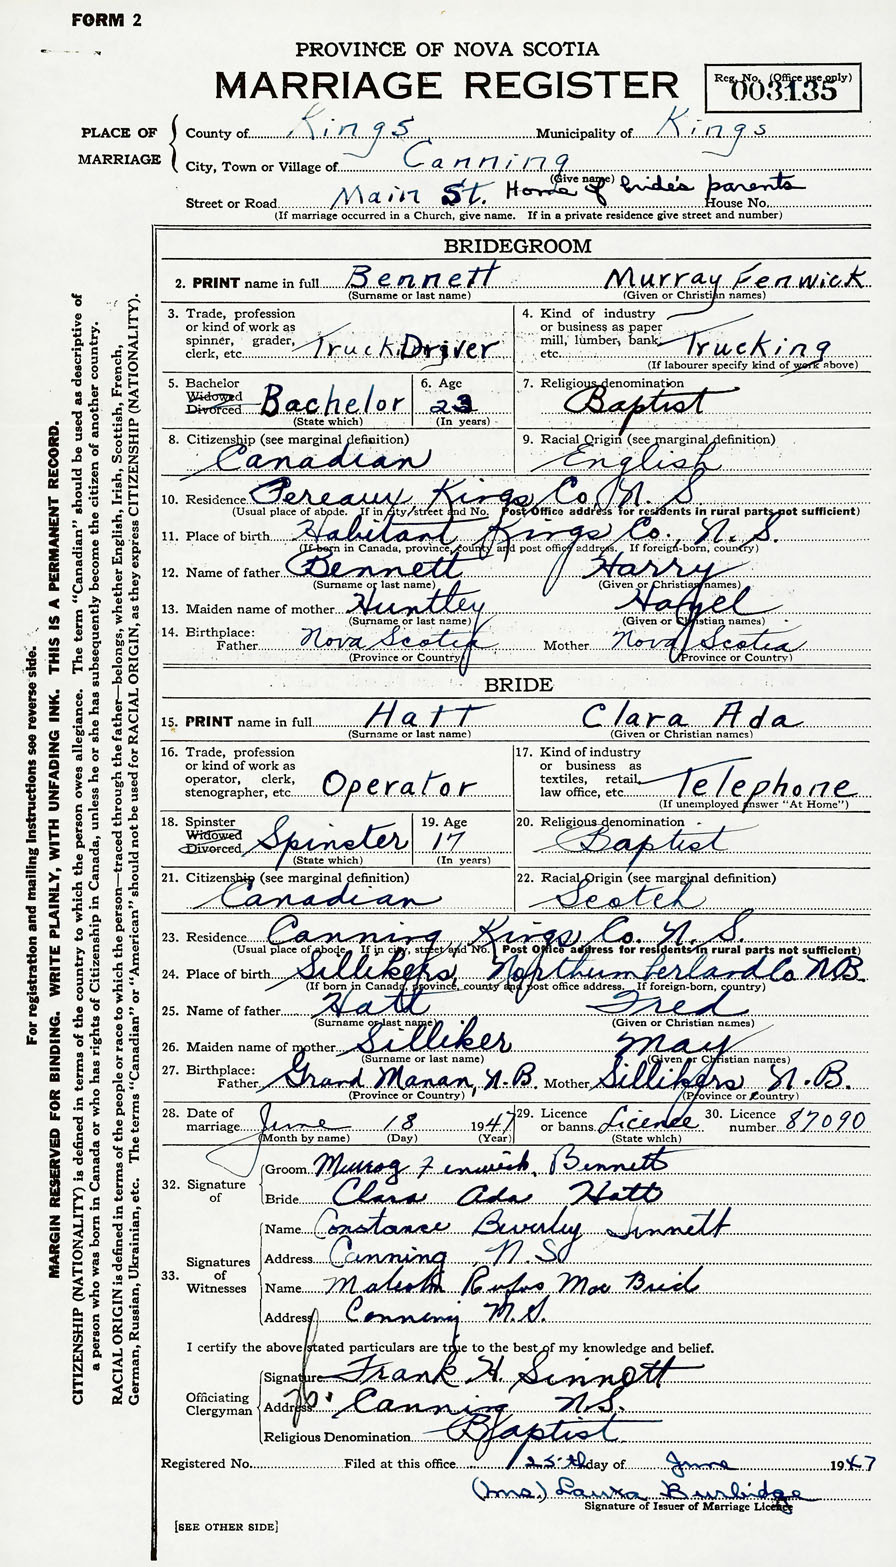 FORM 2
PROVINCE OF NOVA SCOTIA
MARRIAGE REGISTER
Reg. No. (Office use only)
003135
PLACE OF MARRIAGE
County of Kings Municipality of Kings
City, Town or Village of Canning
(Give name)
Street or Road Main St. Home of bride's parents House No.
(If marriage occurred in a Church, give name. If in a private residence give street and number)
BRIDEGROOM
2. PRINT name in full Bennett Murray Fenwick
(Surname or last name) (Given or Christian names)
3. Trade, profession or kind of work as spinner, grader, clerk, etc. Truck Driver
4. Kind of industry or business as paper mill, lumber, bank, etc. Trucking
(If labourer specify kind of work above)
5. Bachelor Widowed Divorced Bachelor
(State which)
6. Age 23
(In years)
7. Religious denomination Baptist
8. Citizenship (see marginal definition) Canadian
9. Racial Origin (see marginal definition) English
10. Residence Pereaux Kings Co. N. S
(Usual place of abode. If in city street and No. Post Office address for residents in rural parts not sufficient)
11. Place of birth Habitant Kings Co., N. S.
(If born in Canada, province, county and post office address. If foreign-born, country)
12. Name of father Bennett Harry
(Surname or last name) (Given or Christian names)
13. Maiden name of mother Huntley Hazel
(Surname or last name) (Given or Christian names)
14. Birthplace: Father Nova Scotia Mother Nova Scotia
(Province or Country) (Province or Country)
BRIDE
15. PRINT name in full Hatt Clara Ada
(Surname or last name) (Given or Christian names)
16. Trade, profession or kind of work as operator, clerk, stenographer, etc. Operator
17. Kind of industry or business as textiles, retail, law office, etc. Telephone
(If unemployed answer "At Home")
18. Spinster Widowed Divorced Spinster
(State which)
19. Age 17
(In years)
20. Religious denomination Baptist
21. Citizenship (see marginal definition) Canadian
22. Racial Origin (see marginal definition) Scotch
23. Residence Canning, Kings Co. N. S.
(Usual place of abode. If in city, street and No. Post Office address for residents in rural parts not sufficient)
24. Place of birth Sillikers, Northumberland Co N.B.
(If born in Canada, province, county and post office address. If foreign-born, country)
25. Name of father Hatt Fred
(Surname or last name) (Given or Christian names)
26. Maiden name of mother Silliker May
(Surname or last name) (Given or Christian names)
27. Birthplace: Father Grand Manan, N.B. Mother Sillikers N.B.
(Province or Country) (Province or Country)
28. Date of marriage June 18 1947
(Month by name) (Day) (Year)
29. Licence or banns Licence
(State which)
30. Licence number 87090
32. Signature of
Groom Murray Fenwick Bennett
Bride Clara Ada Hatt
33. Signatures of Witnesses
Name Constance Beverley Sinnett
Address Canning N.S
Name Malcolm Rufus
Address Canning N.S.
I certify the above stated particulars are true to the best of my knowledge and belief.
Officiating Clergyman
Signature Frank H. Sinnott
Address Canning N.S.
Religious Denomination Baptist
Registered No. Filed at this office 25th day of June 1947
(Mrs.) Laura Burbidge
Signature of Issuer of Marriage Licence
[SEE OTHER SIDE]
For registration and mailing instructions see reverse side.
MARGIN RESERVED FOR BINDING. WRITE PLAINLY, WITH UNFADING INK. THIS IS A PERMANENT RECORD.
CITIZENSHIP (NATIONALITY) is defined in terms of the country to which the person owes allegiance. The term "Canadian" should be used as descriptive of
a person who was born in Canada or who has rights of Citizenship in Canada, unless he or she has subsequently become the citizen of another country.
RACIAL ORIGIN is defined in terms of the people or race to which the person—traced through the father—belongs, whether English, Irish, Scottish, French,
German, Russian, Ukrainian, etc. The terms "Canadian" or "American" should not be used for RACIAL ORIGIN, as they express CITIZENSHIP (NATIONALITY).